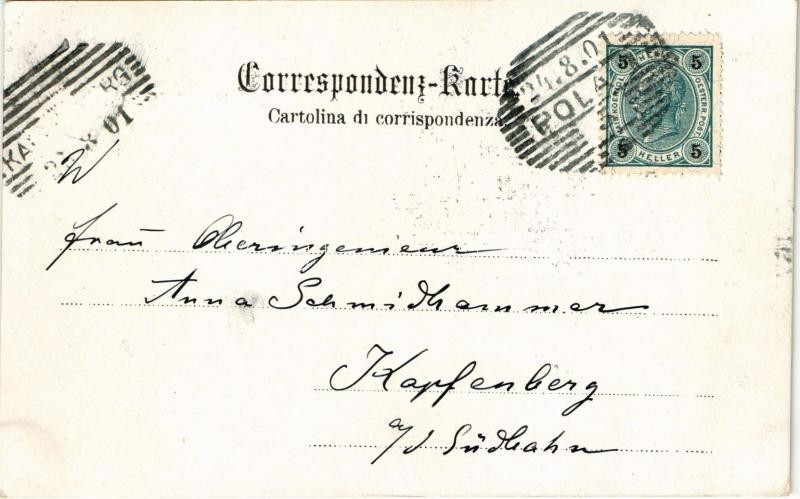 Correspondenz-Karte
Cartolina di corrispondenza
24.8.01
POLA
5 HELLER 5
OESTERR. POST
5 HELLER 5
01
W
Frau Oberingenieur
Anna Schmidhammer
Kapfenberg
a/d Südbahn